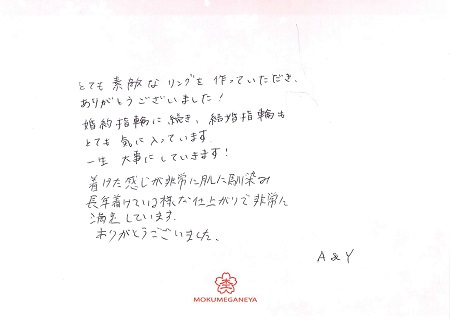 とても素敵なリングを作っていただき、
ありがとうございました!
婚約指輪に続き、結婚指輪も
とても気に入っています。
一生大事にしていきます!
着けた感じが非常に肌に馴染み
長年着けている様な仕上がりで非常に
満足しています。
ありがとうございました。
A & Y
MOKUMEGANEYA